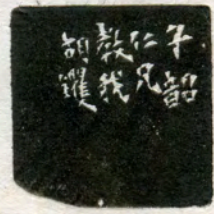 子韶
仁兄
教我
胡钁